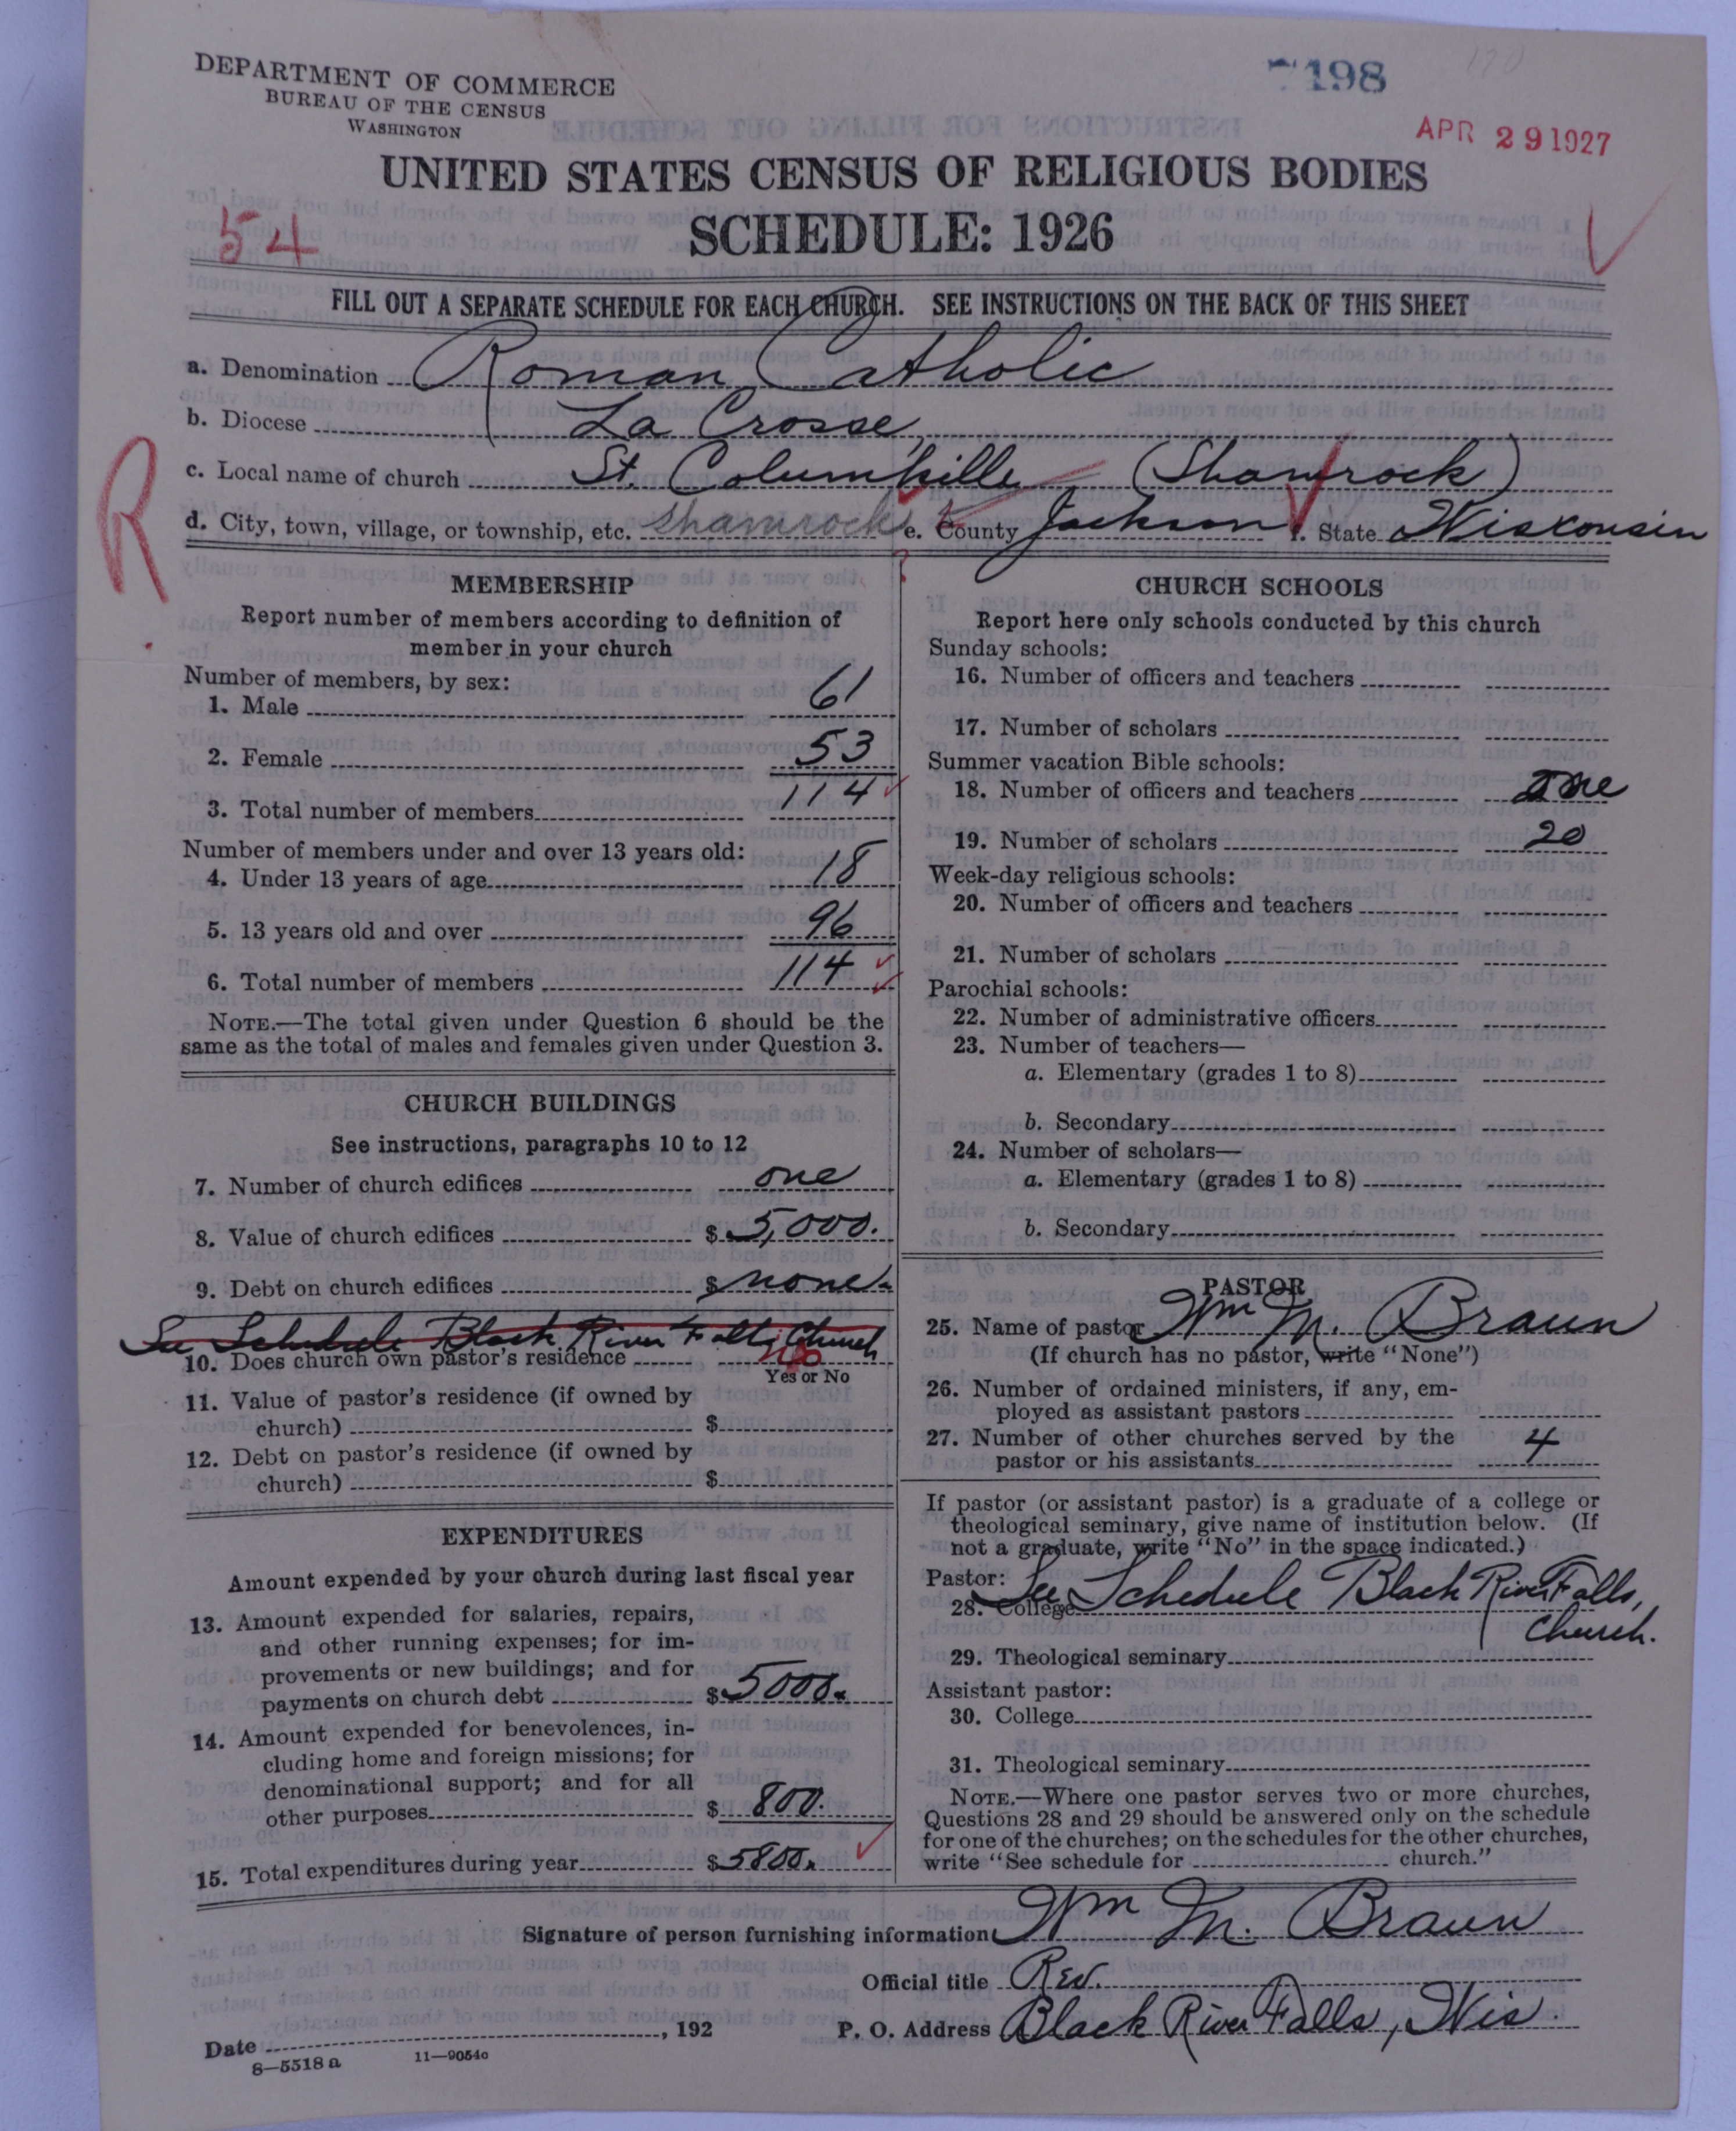 DEPARTMENT OF COMMERCE
BUREAU OF THE CENSUS
WASHINGTON
7198
APR 29 1927
UNITED STATES CENSUS OF RELIGIOUS BODIES
SCHEDULE: 1926
54
FILL OUT A SEPARATE SCHEDULE FOR EACH CHURCH. SEE INSTRUCTIONS ON THE BACK OF THIS SHEET
a. Denomination Roman Catholic
b. Diocese La Crosse
c. Local name of church St. Columbkille (Shamrock)
R
d. City, town, village, or township, etc. Shamrock e. County Jackson f. State Wisconsin
MEMBERSHIP
Report number of members according to definition of
member in your church
Number of members, by sex:
1. Male 61
2. Female 53
3. Total number of members 114
Number of members under and over 13 years old:
4. Under 13 years of age 18
5. 13 years old and over 96
6. Total number of members 114
NOTE.—The total given under Question 6 should be the
same as the total of males and females given under Question 3.
CHURCH BUILDINGS
See instructions, paragraphs 10 to 12
7. Number of church edifices one
8. Value of church edifices $ 5,000.
9. Debt on church edifices $ none.
See Schedule Black River Falls Church
10. Does church own pastor's residence no
Yes or No
11. Value of pastor's residence (if owned by
church) $
12. Debt on pastor's residence (if owned by
church) $
EXPENDITURES
Amount expended by your church during last fiscal year
13. Amount expended for salaries, repairs,
and other running expenses; for im-
provements or new buildings; and for
payments on church debt $ 5000.
14. Amount expended for benevolences, in-
cluding home and foreign missions; for
denominational support; and for all
other purposes $ 800.
15. Total expenditures during year $ 5800.
CHURCH SCHOOLS
Report here only schools conducted by this church
Sunday schools:
16. Number of officers and teachers
17. Number of scholars
Summer vacation Bible schools:
18. Number of officers and teachers one
19. Number of scholars 20
Week-day religious schools:
20. Number of officers and teachers
21. Number of scholars
Parochial schools:
22. Number of administrative officers
23. Number of teachers—
a. Elementary (grades 1 to 8)
b. Secondary
24. Number of scholars—
a. Elementary (grades 1 to 8)
b. Secondary
PASTOR
25. Name of pastor Wm M. Braun
(If church has no pastor, write "None")
26. Number of ordained ministers, if any, em-
ployed as assistant pastors
27. Number of other churches served by the
pastor or his assistants 4
If pastor (or assistant pastor) is a graduate of a college or
theological seminary, give name of institution below. (If
not a graduate, write "No" in the space indicated.)
Pastor:
28. College See Schedule Black River Falls,
Church.
29. Theological seminary
Assistant pastor:
30. College
31. Theological seminary
NOTE.—Where one pastor serves two or more churches,
Questions 28 and 29 should be answered only on the schedule
for one of the churches; on the schedules for the other churches,
write "See schedule for church."
Signature of person furnishing information Wm M. Braun
Official title Rev.
Date , 192 P. O. Address Black River Falls, Wis.
8—5518 a 11—9054c